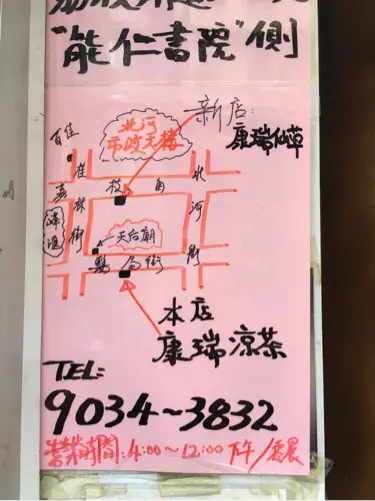 "能仁書院"側
新店:
康瑞仙草
北河
市政大樓
百佳
桂林街
北河街
枝角
天后廟
醫局街
本店
康瑞凉茶
TEL:
9034~3832
營業時間:4:00~12:00下午/零晨